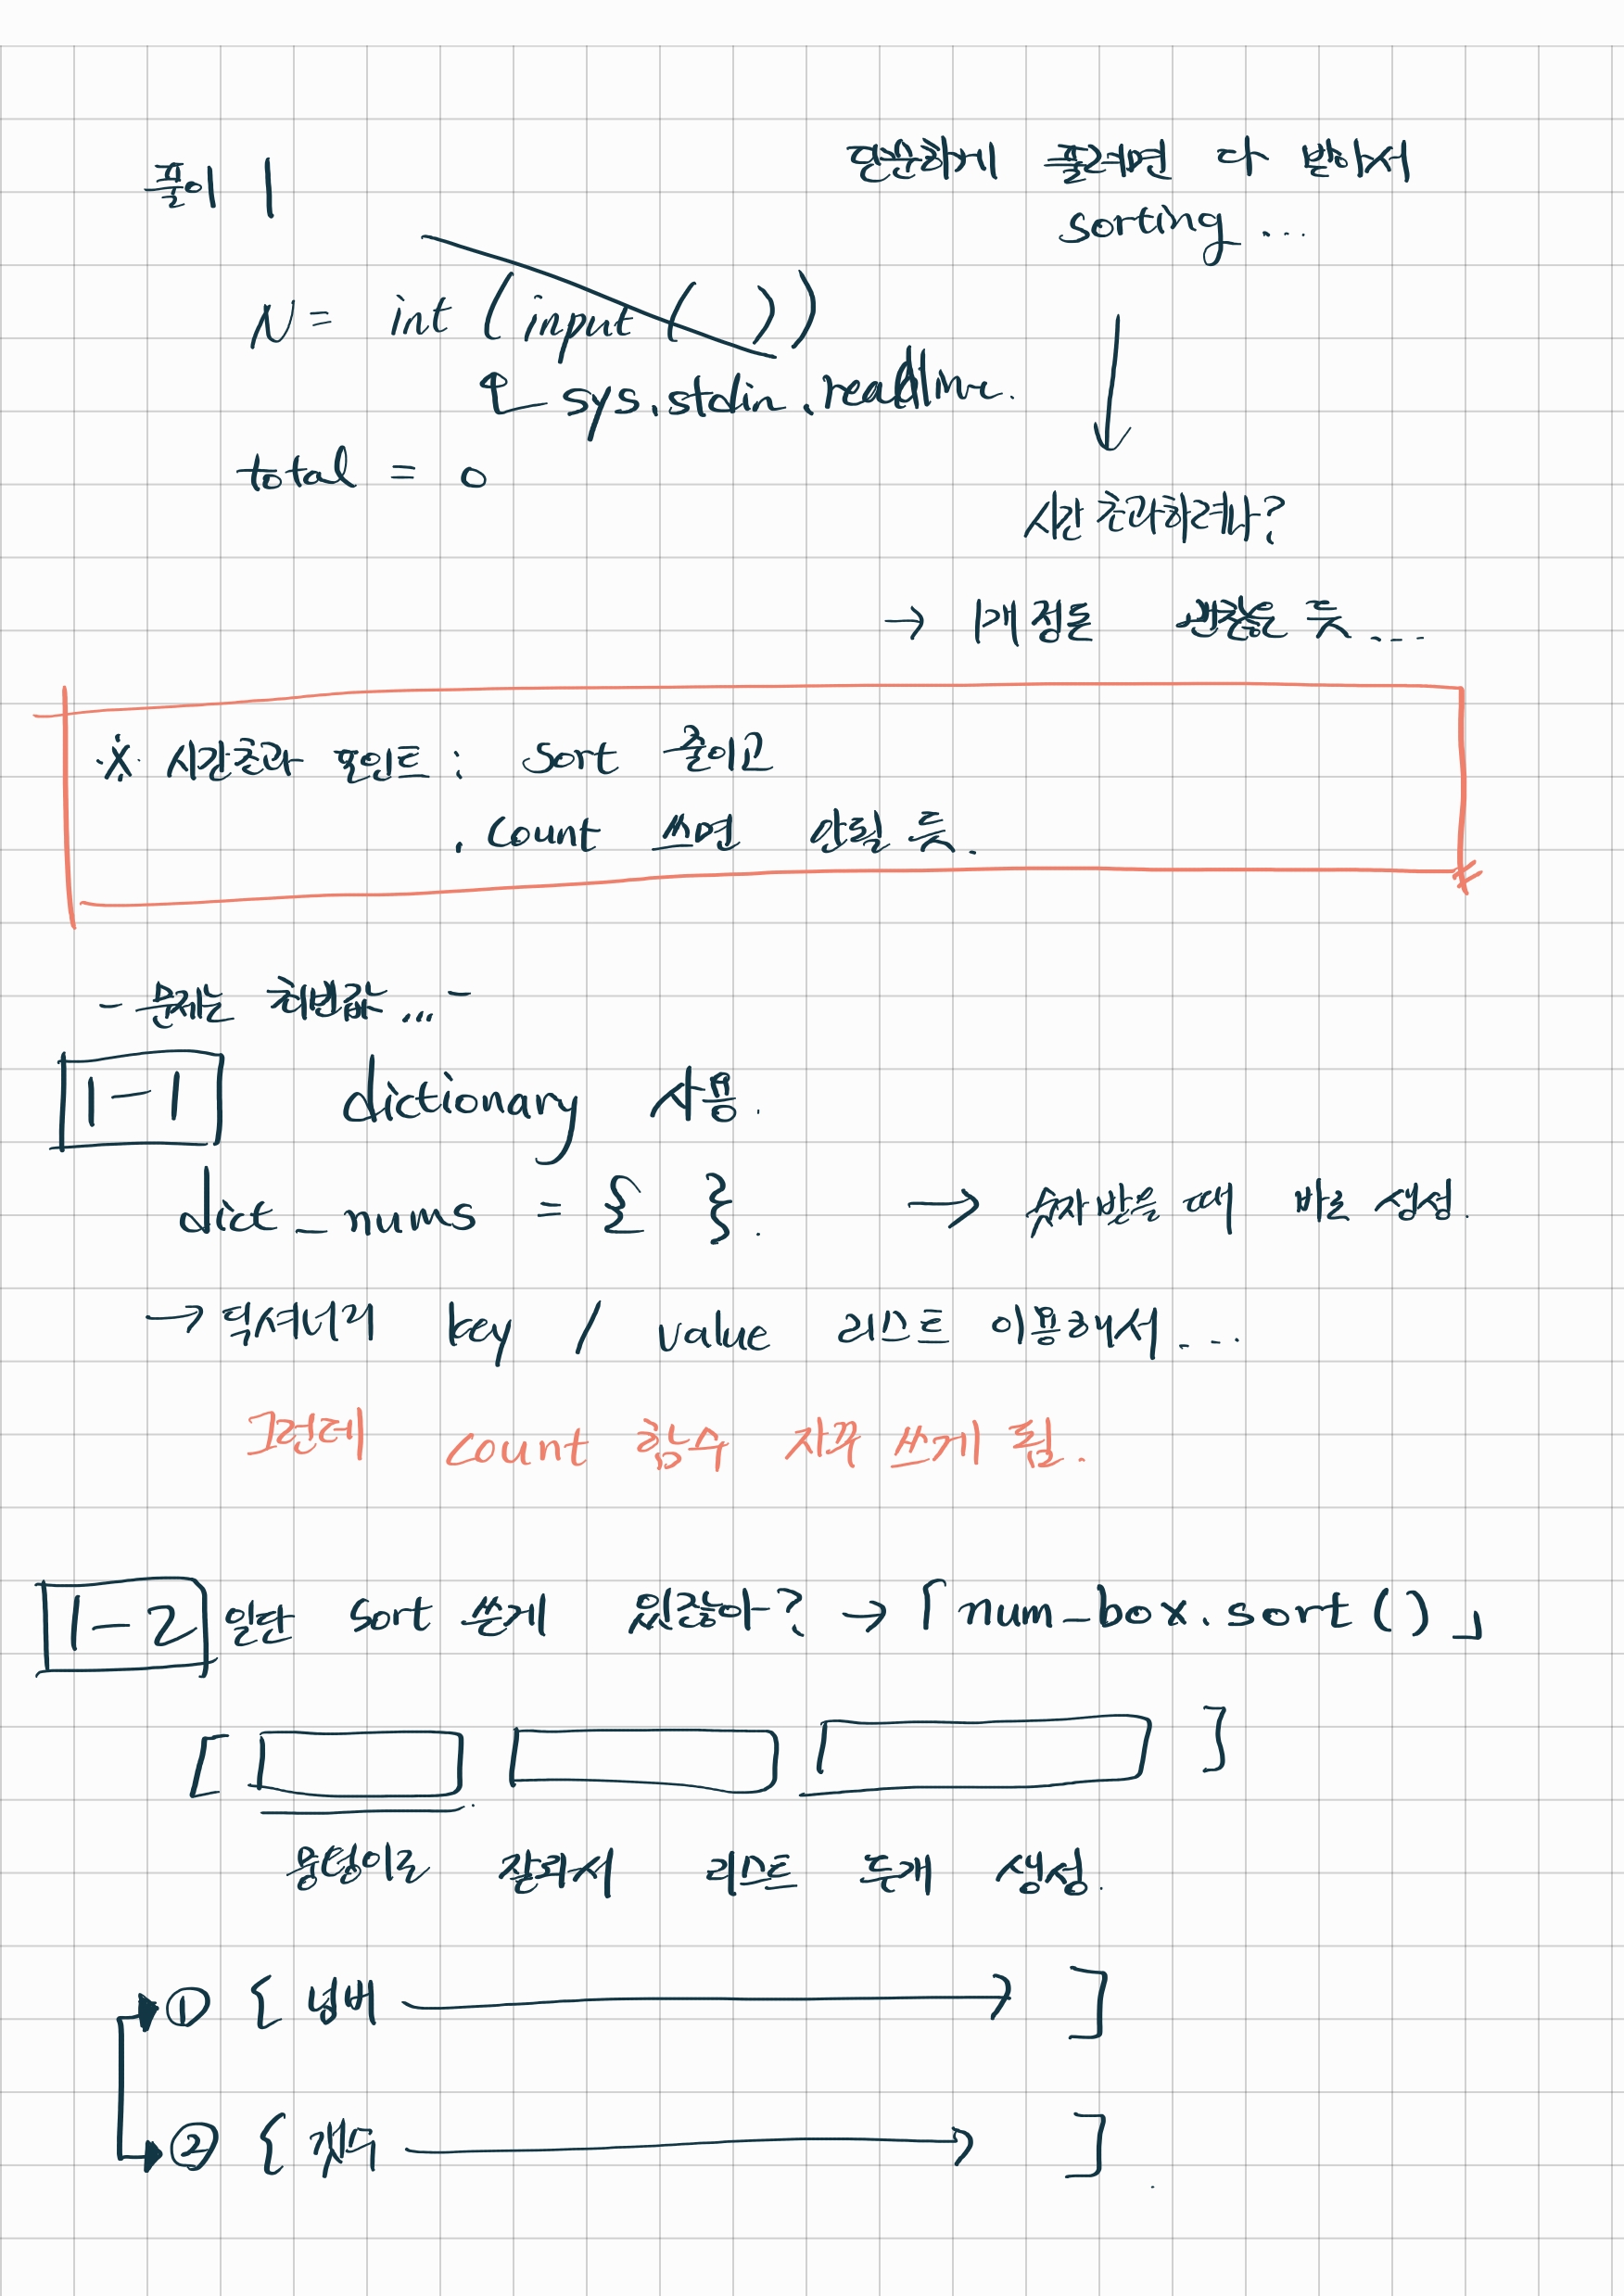 풀이 1
단순하게 풀려면 다 받아서
sorting ...
N = int ( input ( ) )
sys.stdin.readline.
total = 0
시간 초과하려나?
→ 1개 정돈 괜찮을 듯 ....
※ 시간초과 포인트 : Sort 줄이고
. Count 쓰면 안될 듯.
- 문제는 최빈값... -
1-1 dictionary 사용.
dict_nums = { }. → 숫자받을 때 바로 생성.
→ 딕셔너리 key / value 리스트 이용해서...
그런데 count 함수 자꾸 쓰게 됨.
1-2 일단 sort 쓴게 있잖아? → 「num_box.sort()」
[ ]
뭉텅이로 잘라서 리스트 두개 생성.
① { 넘버 → ]
② { 갯수 → ]